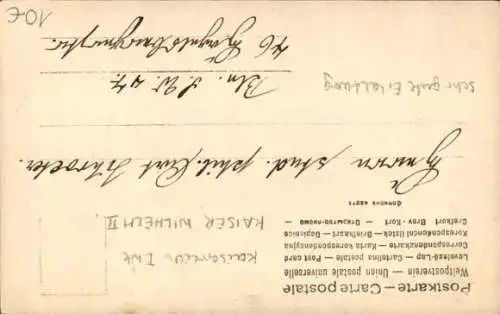 Postkarte — Carte postale
Weltpostverein — Union postale universelle
Levelező-Lap — Cartolina postale — Post card
Correspondenzkarte — Karta korespondencyjna
Korespondenční lístek — Briefkaart — Dopisnica
Brefkort — Brev-Kort —
KAISER WILHELM II.
Herrn stud. phil. Curt Schroeter.
Bln. S. W. 47.
46
sehr gute Erhaltung
10€